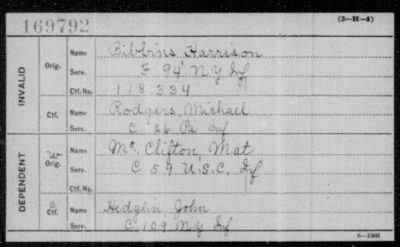 169792
(3-H-4)
INVALID
Orig.
Name Bibbins, Harrison
Serv. F 94 N Y Inf
Ctf. No. 118334
Ctf.
Name Rodgers, Michael
Serv. C 26 Pa Inf
DEPENDENT
W Orig.
Name Mc Clifton, Mat
Serv. C 59 U.S.C. Inf
Ctf. No.
C Ctf.
Name Hedglin, John
Serv. C 109 N Y Inf